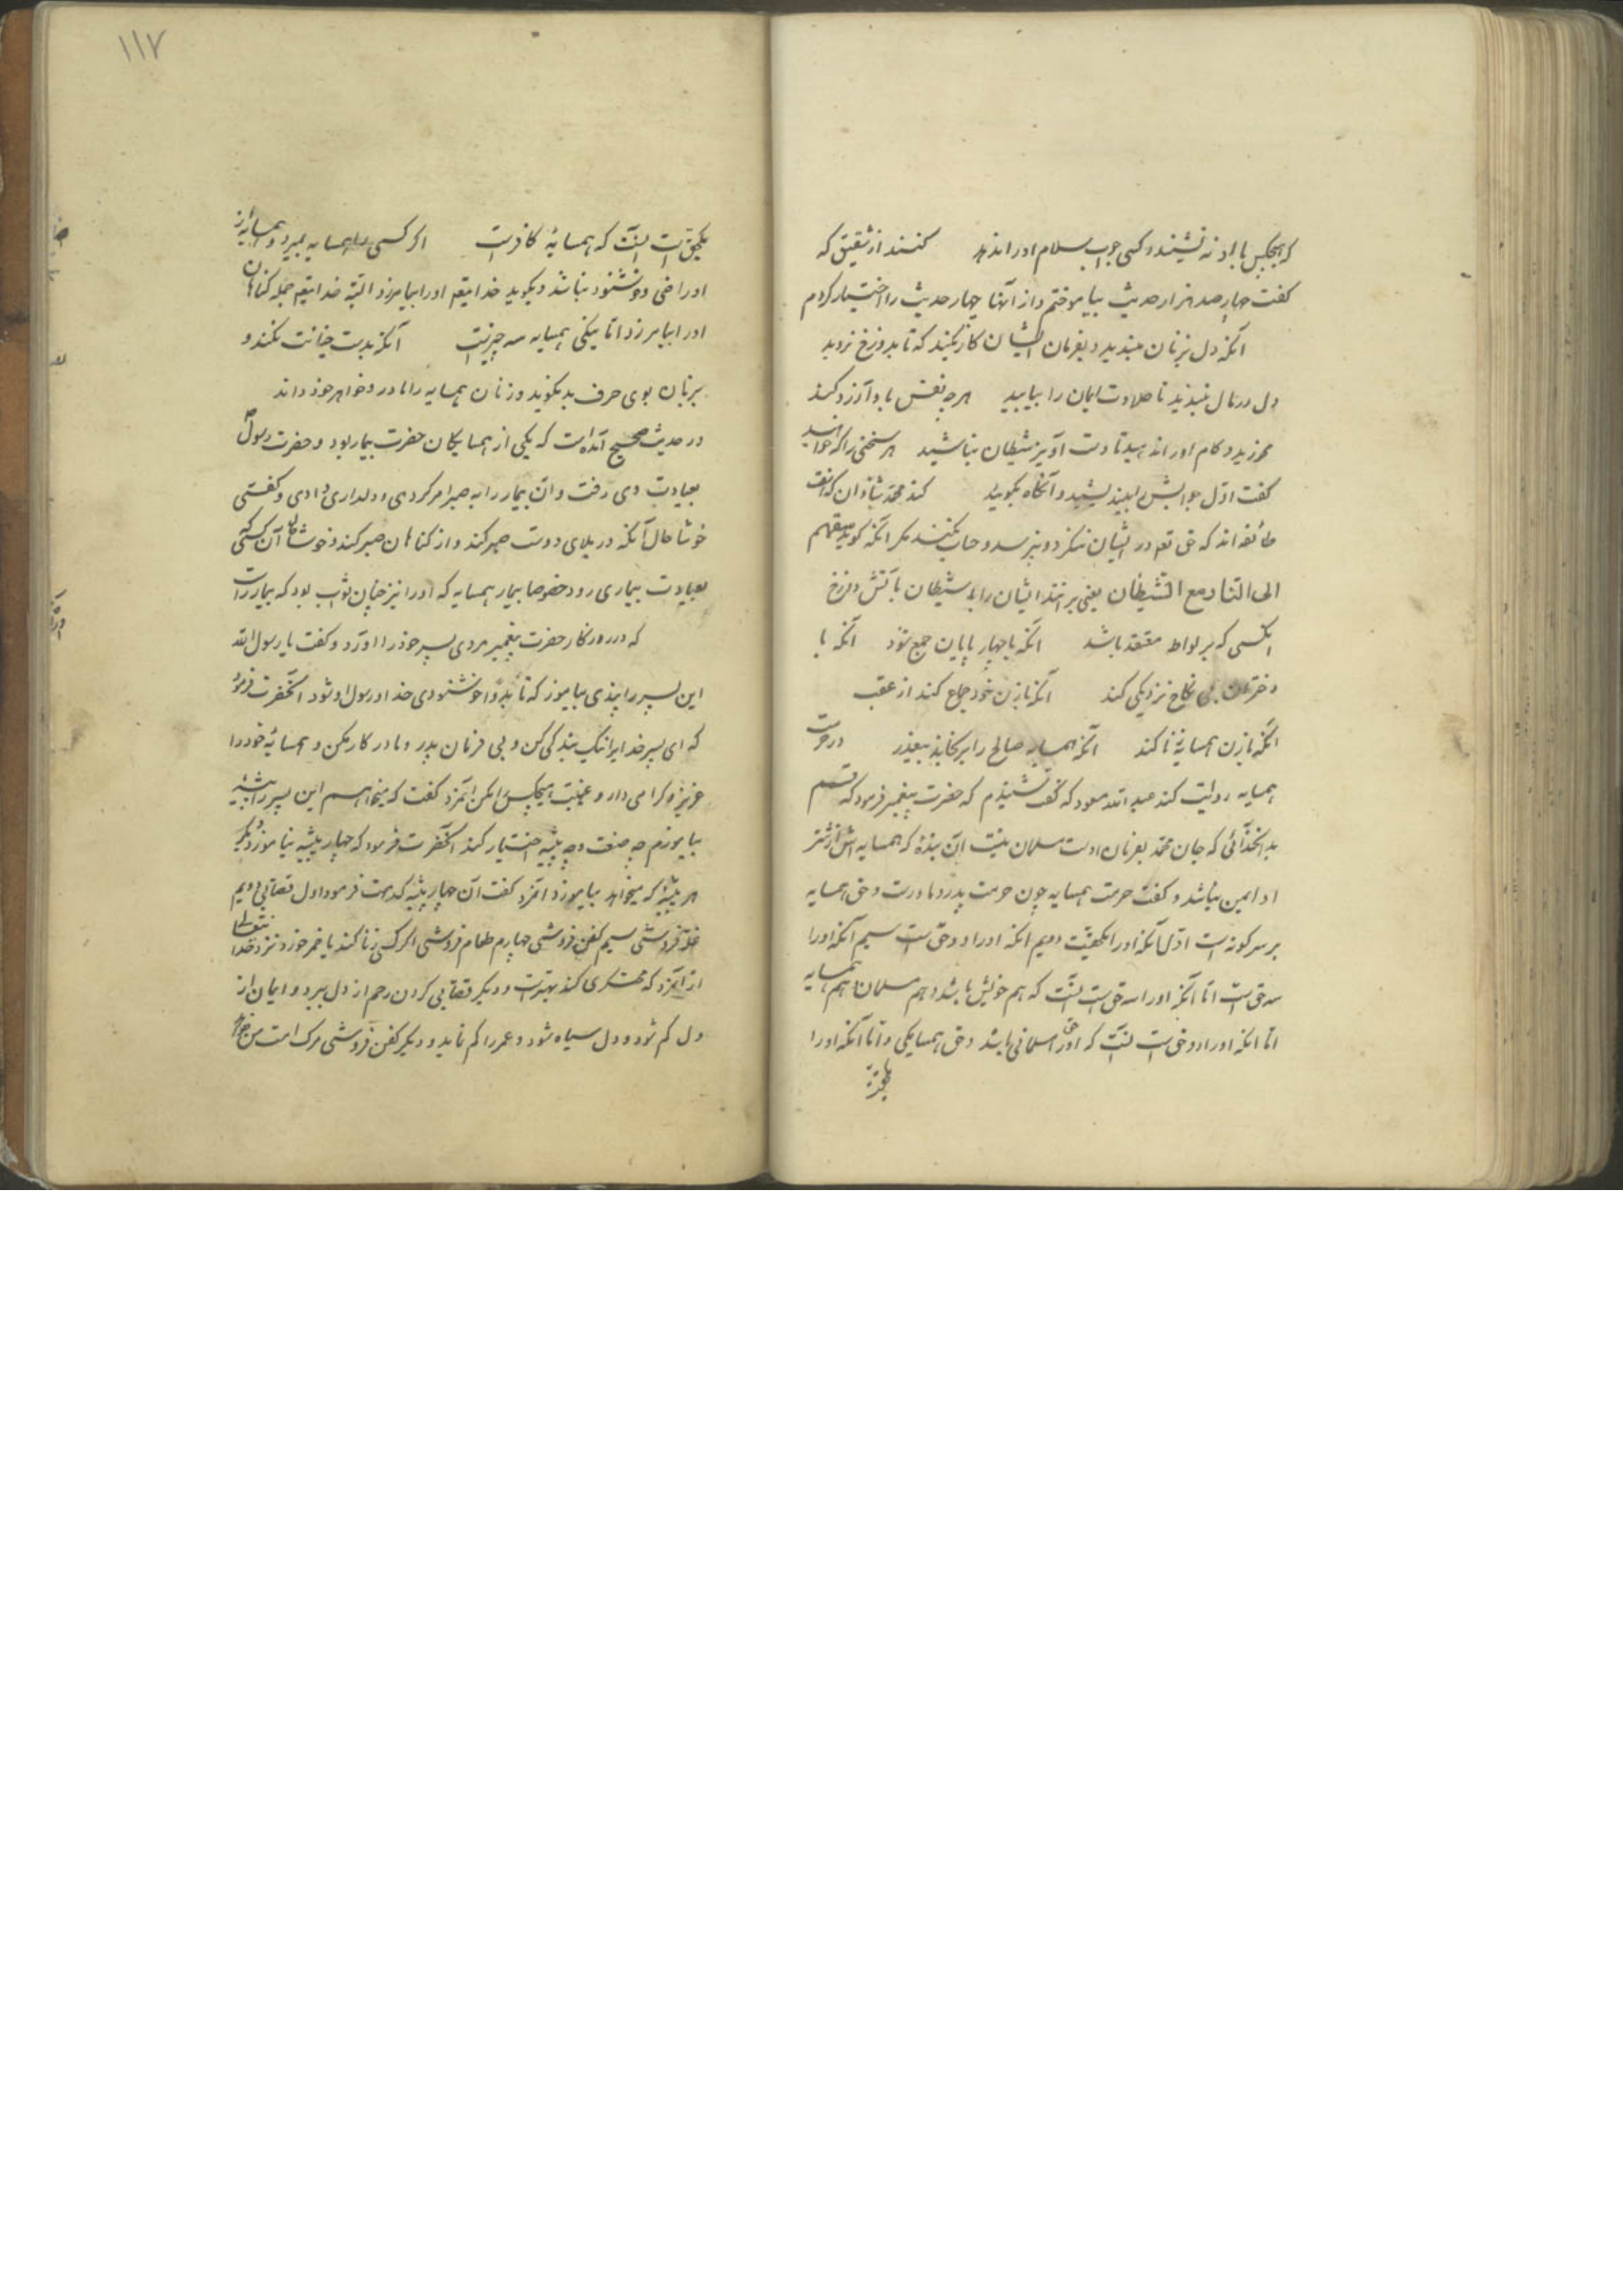 که هیچکس با او نه نشیند و کسی جواب سلام او را ندهد کنند از شقیق که
گفت چهار صد هزار حدیث بیاموختم و از آنها چهار حدیث را اختیار کردم
آنکه دل بزنان مبندید و بفرمان ایشان کار نکنید که تا بدوزخ نروید
دل در مال مبندید تا حلاوت ایمان را بیابید هرچه نفس با و آرزو کند
مورزید و کام او را ندهید تا دست آویز شیطان نباشید هر سخنی را که خواهید
گفت اول جوابش بیندیشید و آنگاه بگویید کند
طائفه اند که حق تع در ایشان ننگرد و نپرسد و حساب نکند مگر آنکه گوید سقهم
الی النار مع الشیطان یعنی برانند ایشان را با شیطان بآتش دوزخ
آنکسی که بر لواط معتقد باشد آنکه با چهار پایان جمع شود آنکه با
دختران بی نکاح نزدیکی کند آنکه با زن خود جماع کند از عقب
آنکه با زن همسایه زنا کند آنکه همسایه صالح را برنجاند بغیر در حرمت
همسایه روایت کند عبدالله مسعود که گفت شنیدم که حضرت پیغمبر فرمود که قسم
بدانخدائی که جان محمد بفرمان اوست مسلمان نیست آن بنده که همسایه اش از شر
او ایمن نباشد و گفت حرمت همسایه چون حرمت پدر و مادرست و حق همسایه
بر سه گونه است اول آنکه او را یکحقست دویم آنکه او را دو حق است سیم آنکه او را
سه حق است اما آنکه او را سه حق است آنست که هم خویش باشد و هم مسلمان و هم همسایه
اما آنکه او را دو حق است آنست که او را حق مسلمانی باشد و حق همسایگی و اما آنکه او را
یکحق
۱۱۷
یکحق است آنست که همسایهٔ کافرست اگر کسی را همسایه بمیرد و همسایه از
او راضی و خوشنود باشد و بگوید خدایتع او را بیامرزد البته خدایتع جمله گناهان
او را بیامرزد اما نیکی همسایه سه چیزست آنکه بدست خیانت نکند و
بزبان بوی حرف بد نگوید و زنان همسایه را مادر و خواهر خود داند
در حدیث صحیح آمده است که یکی از همسایگان حضرت بیمار بود و حضرت رسول
بعیادت وی رفت و آن بیمار را به صبر امر کردی و دلداری دادی و گفتی
خوشا حال آنکه در بلای دوست صبر کند و از گناهان صبر کند و خوشا حال آن کسی که
بعیادت بیماری رود خصوصا بیمار همسایه که او را نیز چنان ثواب بود که بیمار راست
که در روزگار حضرت پیغمبر مردی پسر خود را آورد و گفت یا رسول الله
این پسر را پندی بیاموز که تا بدو خوشنودی خدا و رسول او شود آنحضرت فرمود
که ای پسر خدایرا نیک بندگی کن و بی فرمان پدر و مادر کار مکن و همسایهٔ خود را
عزیز و گرامی دار و غیبت هیچکس مکن آنمرد گفت که میخواهم این پسر را پیشه
بیاموزم چه صنعت و چه پیشه اختیار کند آنحضرت فرمود که چهار پیشه نیاموزد دیگر
هر پیشه که میخواهد بیاموزد آنمرد گفت آن چهار پیشه کدامست فرمود اول قصابی دویم
غله فروشی سیم کفن فروشی چهارم طعام فروشی اگر کسی زنا کند یا خمر خورد نزد خدا
از آنمرد که محتکری کند بهترست و دیگر قصابی کردن رحم از دل ببرد و ایمان از
دل کم شود و دل سیاه شود و عمر را کم نماید و دیگر کفن فروشی مرگ امت من